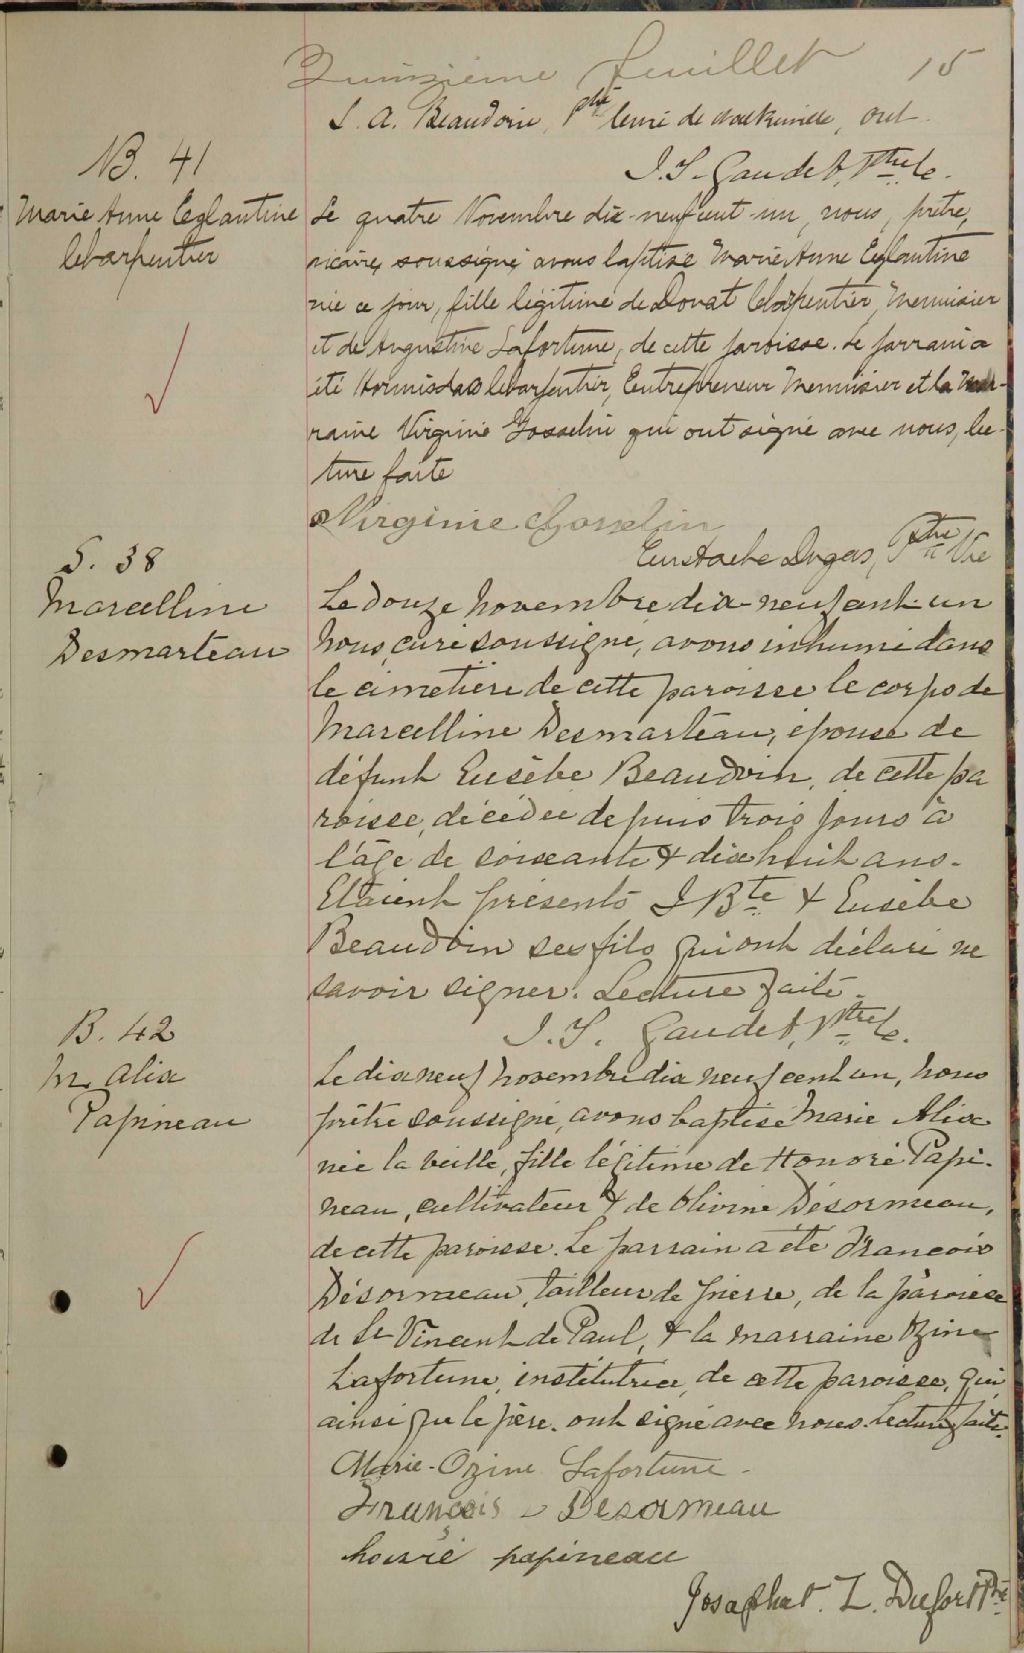 Quinzième feuillet 15
L. A. Beaudoin, Ptre Curé de Walkerville, ont
J. S. Gaudet, Ptre C.
B. 41
Marie Anne Eglantine
Lecarpentier
Le quatre Novembre dix-neuf cent-un, nous, prêtre,
vicaire, soussigné avons baptisé Marie Anne Eglantine
née ce jour, fille légitime de Donat LeCarpentier, Menuisier
et de Augustine Lafortune, de cette paroisse. Le parrain a
été Hormisdas Lecarpentier, Entrepreneur Menuisier et la Mar-
raine Virginie Gosselin qui ont signé avec nous, lec-
ture faite
Virginie Gosselin
Eustache Dugas, Ptre Vic
S. 38
Marcelline
Desmarteau
Le douze novembre dix-neuf cent-un
nous, curé soussigné, avons inhumé dans
le cimetière de cette paroisse le corps de
Marcelline Desmarteau, épouse de
défunt Eusèbe Beaudoin, de cette pa
roisse, décédée depuis trois jours à
l'âge de soixante & dix huit ans.
Etaient présents J Bte & Eusèbe
Beaudoin ses fils qui ont déclaré ne
savoir signer. Lecture faite.
J. S. Gaudet, Ptre C.
B. 42
M. Alix
Papineau
Le dix neuf novembre dix neuf cent un, nous
prêtre soussigné, avons baptisé Marie Alix
née la veille, fille légitime de Honoré Papi-
neau, cultivateur & de Olivine Désormeau,
de cette paroisse. Le parrain a été François
Désormeau, tailleur de pierre, de la paroisse
de St Vincent de Paul, & la marraine Ozine
Lafortune, institutrice, de cette paroisse, qui
ainsi que le père, ont signé avec nous. Lecture faite.
Marie-Ozine Lafortune
François Desormeau
honré papineau
Josaphat. Z. Dufort Ptre